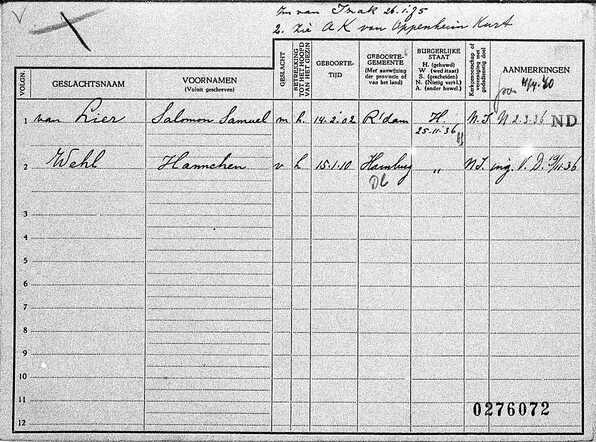 V
Zn van Izak 26.1.75
2. Zie AK van Oppenheim Kurt
VOLGN.
GESLACHTSNAAM
VOORNAMEN
(Voluit geschreven)
GESLACHT
BETREKKING TOT HET HOOFD VAN HET GEZIN
GEBOORTE-
TIJD
GEBOORTE-
GEMEENTE
(Met aanwijzing
der provincie of
van het land)
BURGERLIJKE
STAAT
H. (gehuwd)
W (wed.naar)
S. (gescheiden)
N. (Nietig verkl.)
A. (ander huwel.)
Kerkgenootschap of vereeniging met godsdienstig doel
AANMERKINGEN
4/4.40
1 van Lier Salomon Samuel m h. 14.2.02 R'dam H. N.I. N 2.3.36 ND
25.11.36
2 Wehl Hannchen v h 15.1.10 Hamburg " N.I. ing. V.D. 36
Dl
3
4
5
6
7
8
9
10
11
12
0276072